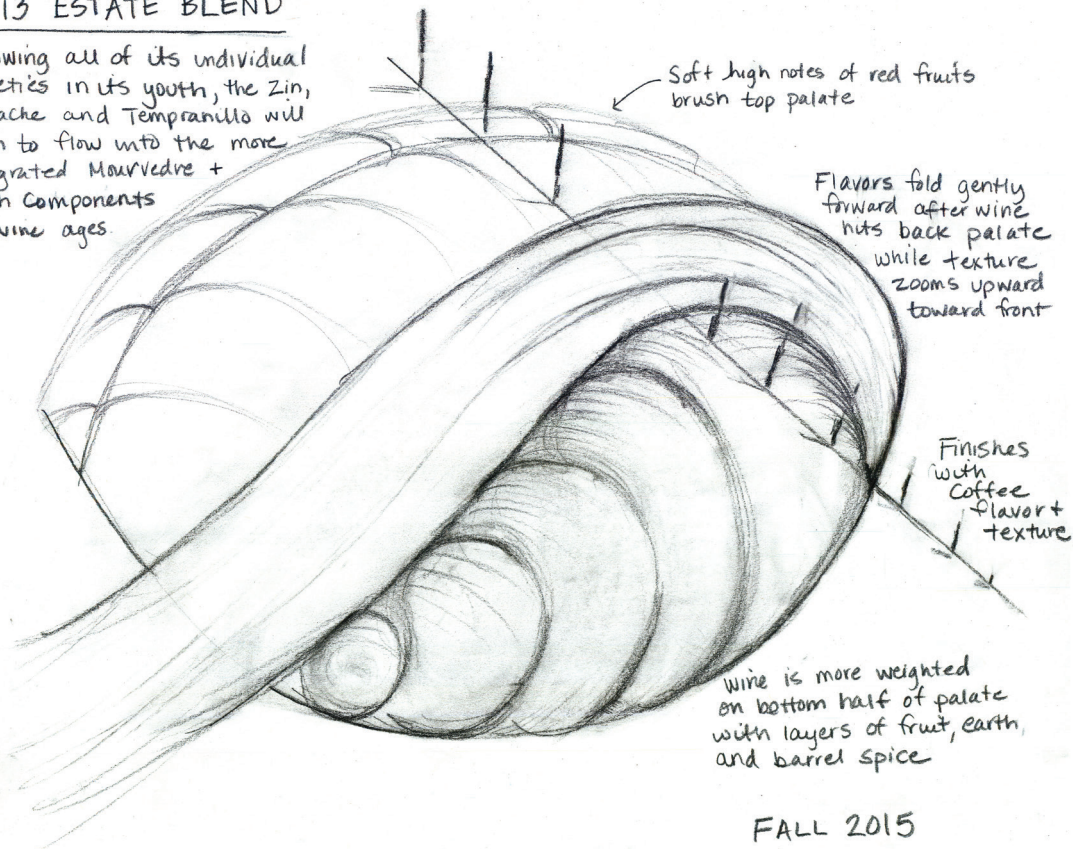 13 ESTATE BLEND
wing all of its individual
eties in its youth, the Zin,
ache and Tempranillo will
n to flow into the more
grated Mourvedre +
h Components
wine ages.
Soft high notes of red fruits
brush top palate
Flavors fold gently
forward after wine
hits back palate
while texture
zooms upward
toward front
Finishes
with
Coffee
flavor +
texture
wine is more weighted
on bottom half of palate
with layers of fruit, earth,
and barrel spice
FALL 2015